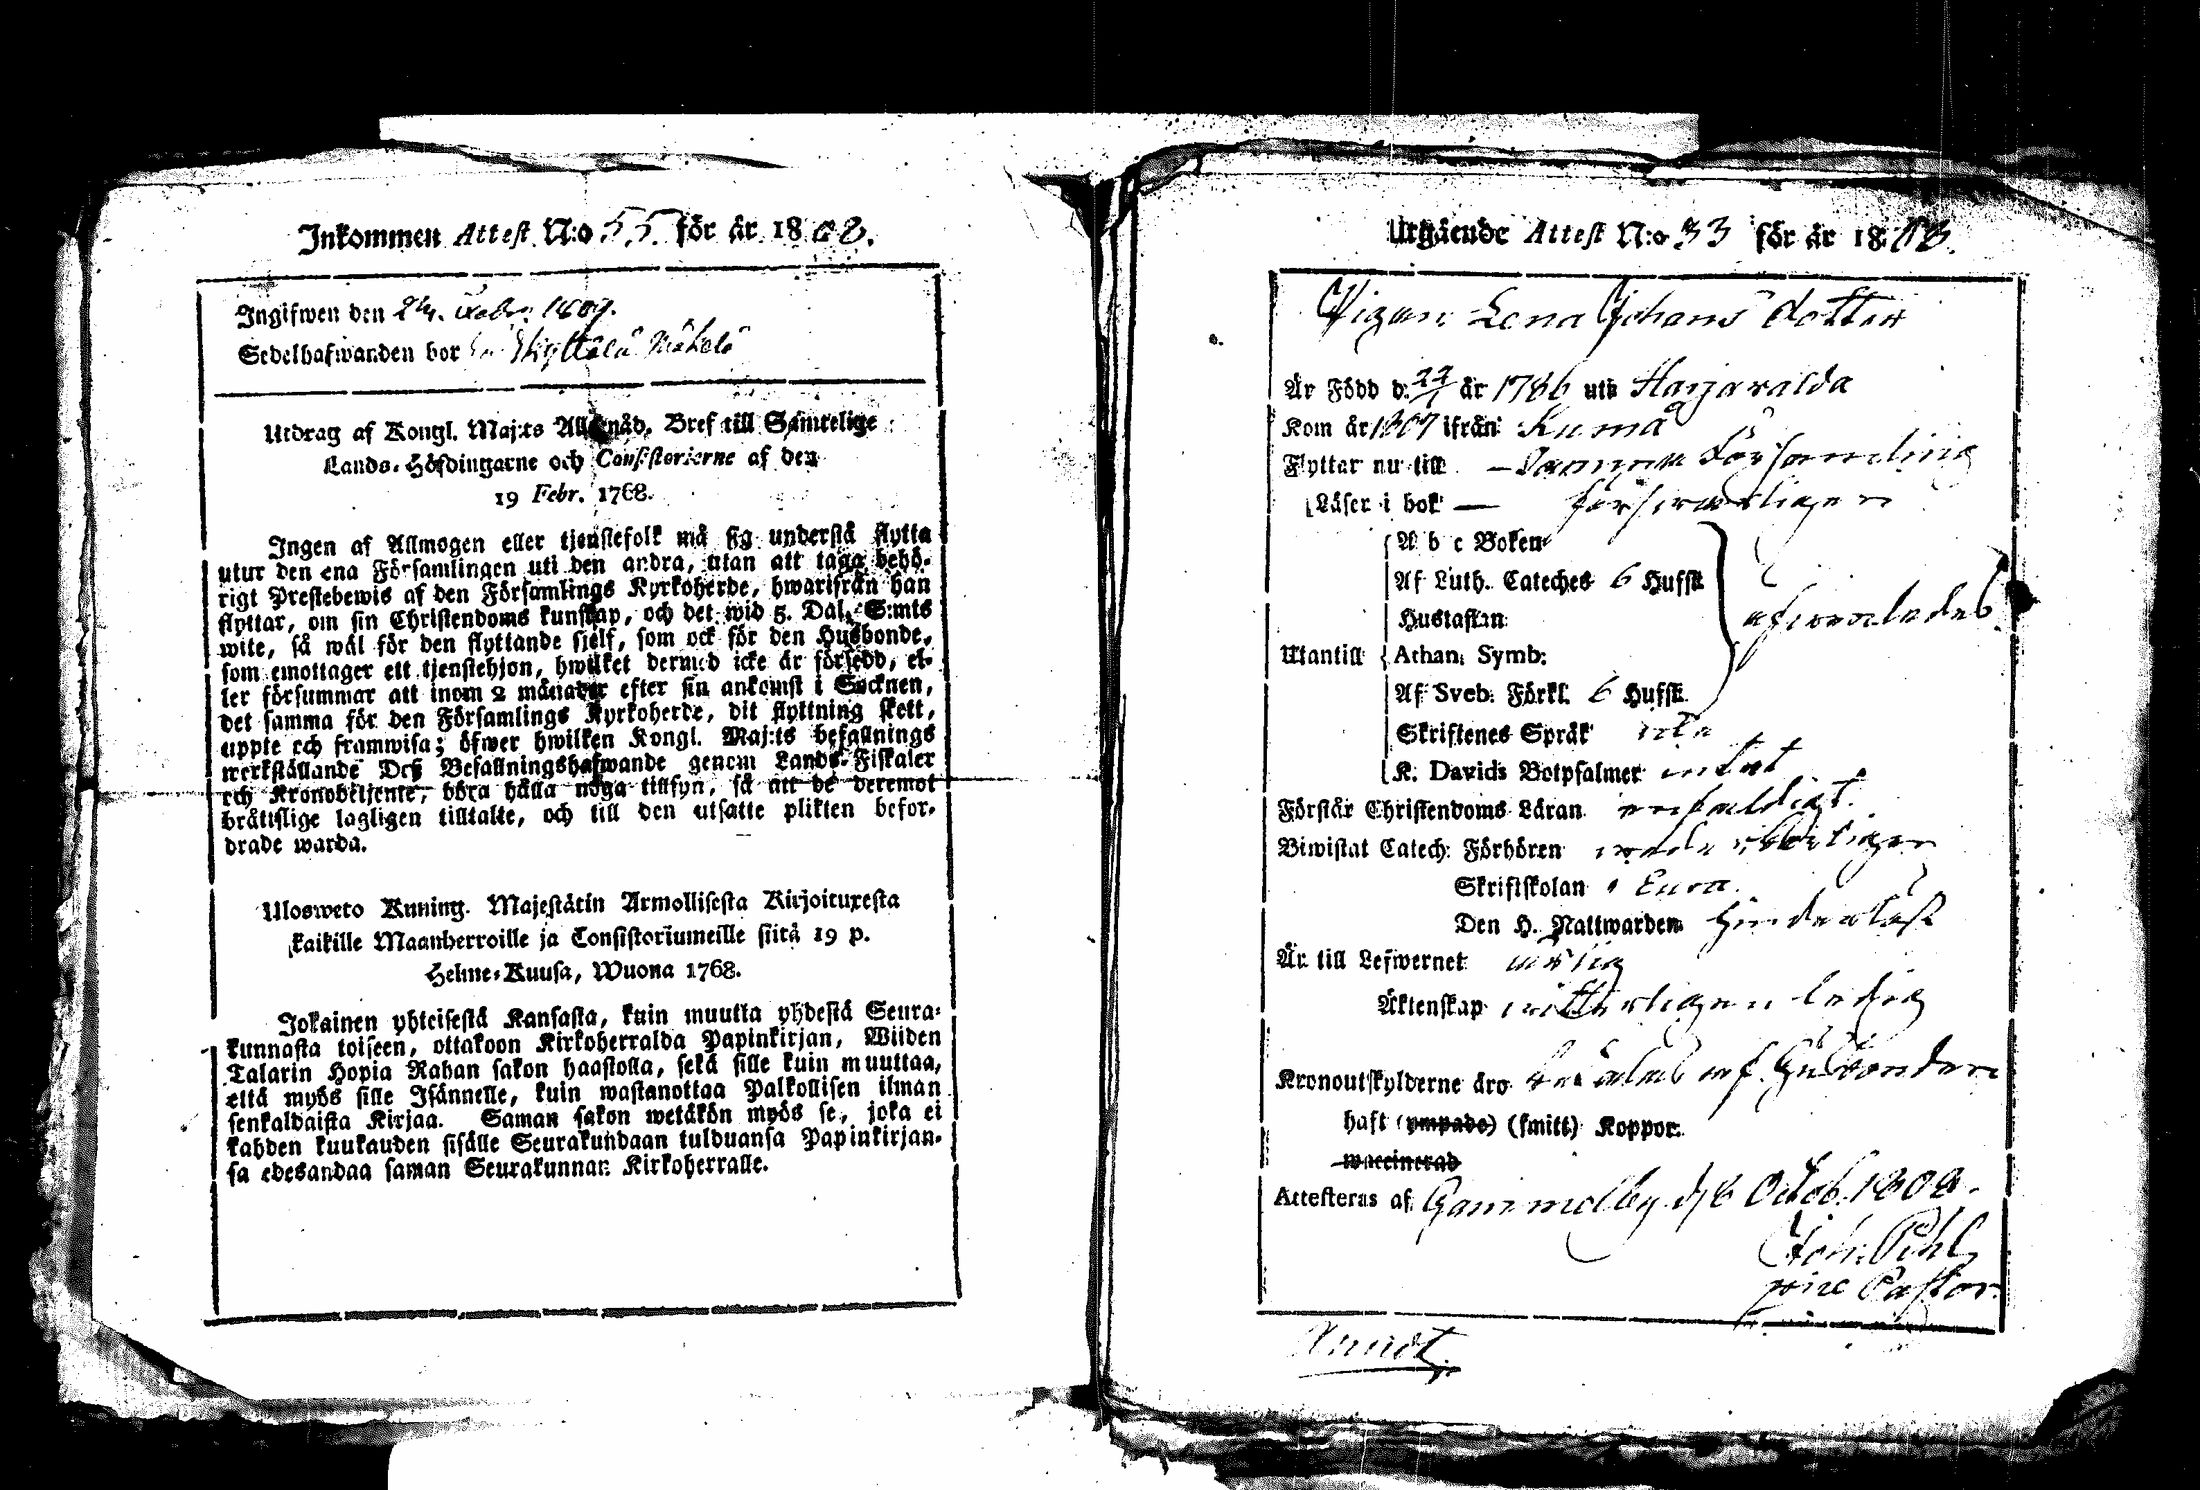 Inkommen Attest N:o 55. för år 1808.
Ingifwen den 24. 1809.
Sedelhafwanden bor
Utdrag af Kongl. Maj:ts Allernåd. Bref till Samtelige
Lands-Höfdingarne och Consistorierne af den
19 Febr. 1768.
Ingen af Allmogen eller tjenstefolk må sig understå flytta
utur den ena Församlingen uti den andra, utan att taga behö-
rigt Prestebewis af den Församlings Kyrkoherde, hwarifrån han
flyttar, om sin Christendoms kunskap, och det wid 5. Dal. S:mts
wite, så wäl för den flyttande sjelf, som ock för den Husbonde,
som emottager ett tjenstehjon, hwilket dermed icke är försedd, el-
ler försummar att inom 2 månader efter sin ankomst i Socknen,
det samma för den Församlings Kyrkoherde, dit flyttning skett,
uppte och framwisa; öfwer hwilken Kongl. Maj:ts befallnings
werkställande Deß Befallningshafwande genom Lands-Fiskaler
och Kronobetjente, böra hålla noga tillsyn, så att de deremot
bråtslige lagligen tilltalte, och till den utsatte plikten befor-
drade warda.
Ulosweto Kuning. Majestätin Armollisesta Kirjoituxesta
kaikille Maanherroille ja Consistoriumeille siitä 19 p.
Helme-Kuusa, Wuona 1768.
Jokainen yhteisestä Kansasta, kuin muutta yhdestä Seura-
kunnasta toiseen, ottakoon Kirkoherralda Papinkirjan, Wiiden
Talarin Hopia Rahan sakon haastolla, sekä sille kuin muuttaa,
että myös sille Isännelle, kuin wastanottaa Palkollisen ilman
senkaldaista Kirjaa. Saman sakon wetäkön myös se, joka ei
kahden kuukauden sisälle Seurakundaan tulduansa Papinkirjan-
sa edesandaa saman Seurakunnan Kirkoherralle.
Utgående Attest N:o 33 för år 1808.
Pigan Lena Johans dotter
Är Född d. 22/1 år 1786 uti Harjavalda
Kom år 1807 ifrån Kumå
Flyttar nu till församling
Läser i bok — försvarligen
A b c Boken
Af Luth. Cateches 6 Hufst.
Hustaflan
Utantill Athan. Symb.
Af Sveb. Förkl. 6 Hufst.
Skriftenes Språk
K. Davids Botpsalmer intet
Förstår Christendoms Läran enfaldigt.
Biwistat Catech. Förhören
Skriftskolan i Eura
Den H. Nattwarden
Är till Lefwernet ärlig
Äktenskap ledig
Kronoutskylderne äro betalas af Husbonden
haft (ympade) (smitt) Koppor.
waccinerad
Attesteras af Gammelby d. 8 Octob. 1808.
Joh. Pihl
vice Pastor.